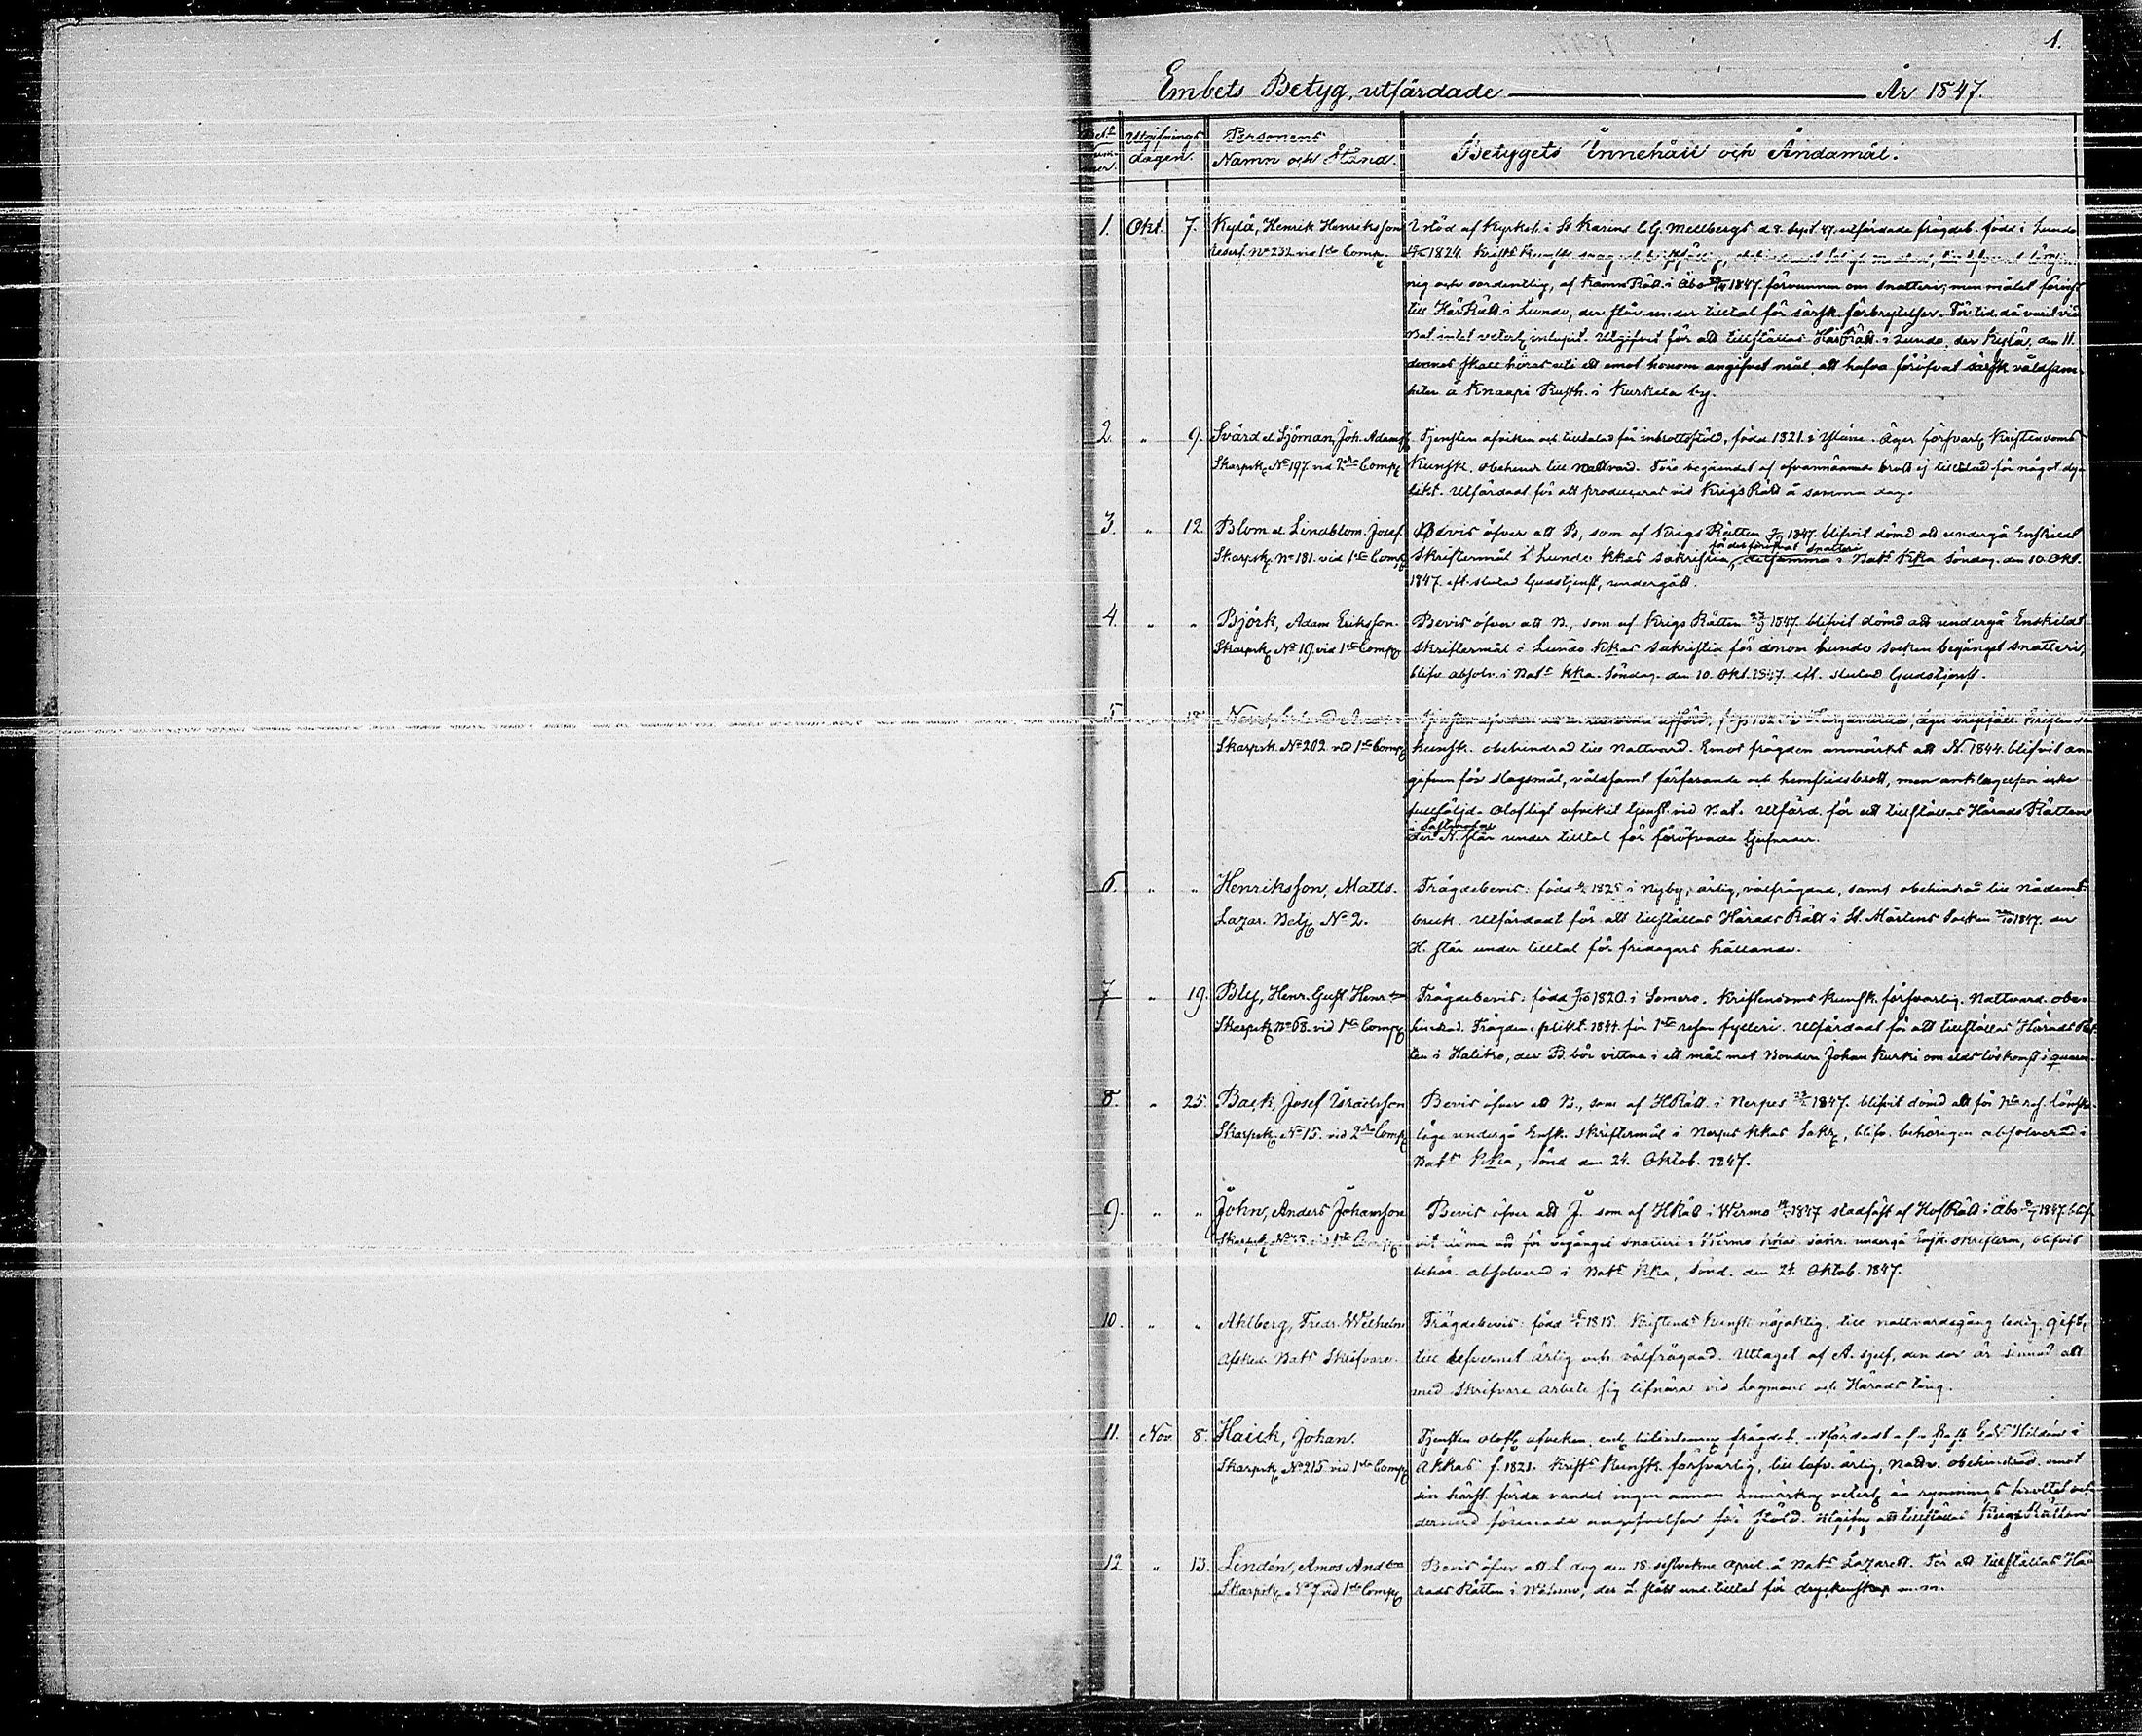 1.
Embets Betyg, utfärdade År 1847.
Utgifnings dagen.
Personens Namn och Stånd.
Betygets Innehåll och Ändamål.
1. Okt. 7. Kylä, Henrik Henriksson
Reserf. No 232 vid 1sta Comp.
I stöd af Kyrkoh. i St Karins C. G. Mellbergs d. 8. Sept. 47. utfärdade frägdeb. född i Lundo
1824. Krists Kunsk. svag
och ordentlig, af Kämns Rätt. i Åbo 1847. förvunnen om snatteri, men målet förvist
till Här. Rätt. i Lundo, der står under tilltal för särsk. förbrytelser. För tid. då varit vid
Bat. intet veterl. inlupit. Utgifvet för att tillställas Här. Rätt. i Lundo, der Kylä, den 11.
dennes skall höras uti ett emot honom angifvet mål, att hafva föröfvat särsk. våldsam-
heter å Knaapi Rusth. i Kurkela by.
2. " 9. Svärd el. Sjöman, Joh. Adamss.
Skarpsk. No 197 vid 2dra Comp.
Tjensten afviken och tilltalad för inbrottsstöld, född 1821. i Yläne. Äger försvarl. Kristendoms
Kunsk. obehindr. till nattvard. Före begåendet af ofvannämnde brott ej tilltalad för något dy-
likt. Utfärdadt för att produceras vid Krigs Rätt å samma dag.
3. " 12. Blom el. Lindblom. Josef.
Skarpsk. No 181. vid 1sta Comp.
Bevis öfver att B, som af Krigs Rätten 1847. blifvit dömd att undergå Enskildt
för der föröfvat snatteri
Skriftermål i Lundo Kkas sakristia, detsamma i Bats Kka Söndag. den 10. Okt.
1847. eft. slutad Gudstjenst, undergått.
4. " " Björk, Adam Eriksson.
Skarpsk. No 19. vid 1sta Comp.
Bevis öfver att B., som af Krigs Rätten 1847. blifvit dömd att undergå Enskildt
Skriftermål i Lundo Kkas sakristia för inom Lundo socken begånget snatteri,
blifv. absolv. i Bats Kka. Söndag. den 10. Okt. 1847. eft. slutad Gudstjenst.
5
Skarpsk. No 202 vid 1sta Comp.
kunsk. obehindrad till Nattvard. Emot frägden anmärkt att N. 1844. blifvit an-
gifven för slagsmål, våldsamt förfarande och hemfridsbrott, men anklagelsen icke
fullföljd. Olofligt afvikit tjenst. vid Bat. Utfärd. för att tillställas Härads Rätten
der N. står under tilltal för föröfvade tjufnader.
6. " " Henriksson, Matts.
Lazar. Betj. No 2.
Frägdebevis: född 1825 i Nyby, ärlig, välfrägdad, samt obehindrad till Nådemed.
bruk. Utfärdadt för att tillställas Härads Rätt i St. Mårtens Socken 1847. der
H. står under tilltal för fridagars hållande.
7 " 19. Bly, Henr. Gust. Henr.
Skarpsk. No 68. vid 1sta Comp.
Frägdebevis: född 1820. i Somero. Kristendoms Kunsk. försvarlig. Nattvard. obe-
hindrad. Frägden: plikt. 1844. för 1sta resan fylleri. Utfärdadt för att tillställas Härads Rät-
ten i Haliko, der B. bör vittna i ett mål mot Bonden Johan Kurki om elds löskomst i
8. " 25. Back, Josef Israelsson
Skarpsk. No 15. vid 2dra Comp.
Bevis öfver att B., som af HRätt. i Nerpes 1847. blifvit dömd att för 1sta res. lönska-
läge undergå Ensk. skriftermål i Nerpes Kkas Sakr., blifv. behörigen absolverad i
Bats Kka, Sönd den 24. Oktob. 1847.
9. " " John, Anders Johansson
Bevis öfver att J. som af HRätt i Wirmo 1847 stadfäst af Hof Rätt i Åbo 1847. blif-
vit dömd att för begånget snatteri i Wirmo Kkas sakr. undergå Ensk. skrifterm, blifvit
behör. absolverad i Bats Kka, Sönd. den 24. Oktob. 1847.
10. " " Ahlberg, Fredr. Wilhelm
Afsked. Bats Skrifvare.
Frägdebevis: född 1815. Kristends Kunsk. nöjaktig, till nattvardsgång ledig, gift,
till lefvernet ärlig och välfrägdad. Uttaget af A. sjelf, den der är sinnad att
med skrifvare arbete sig lifnära vid Lagmans och Härads ting.
11. Nov. 8. Hauk, Johan.
Skarpsk. No 215 vid 1sta Comp.
Tjensten olofl. afviken, enl. frägdeb. utfärdadt af Hildén i
Akkas f. 1821. Krists Kunsk. försvarlig, till lefv. ärlig, Nattv. obehindrad. emot
sin härst. förda vandel ingen annan anmärkn. veterl. än rymnings brottet och
dermed förenade angifvelser för stöld. Utgifv. att tillställas Krigs Rätten
12 " 13. Lindén, Amos And.
Skarpsk. No 7 vid 1sta Comp.
Bevis öfver att L dog den 18. sistvekne April. å Bats Lazarett. För att tillställas Hä-
rads Rätten i , der L. stått und. tilltal för dryckenskap m. m.